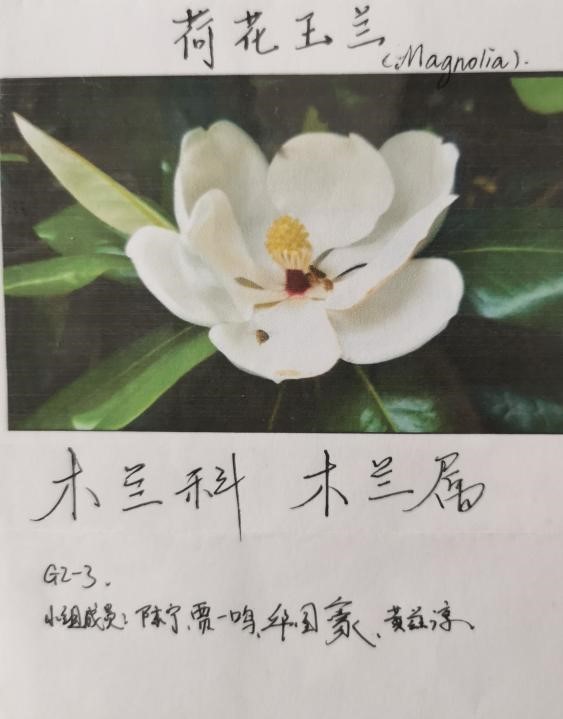 荷花玉兰
(Magnolia).
木兰科 木兰属
G2-3.
小组成员：陈宁、贾一鸣、华国豪、黄兹淳